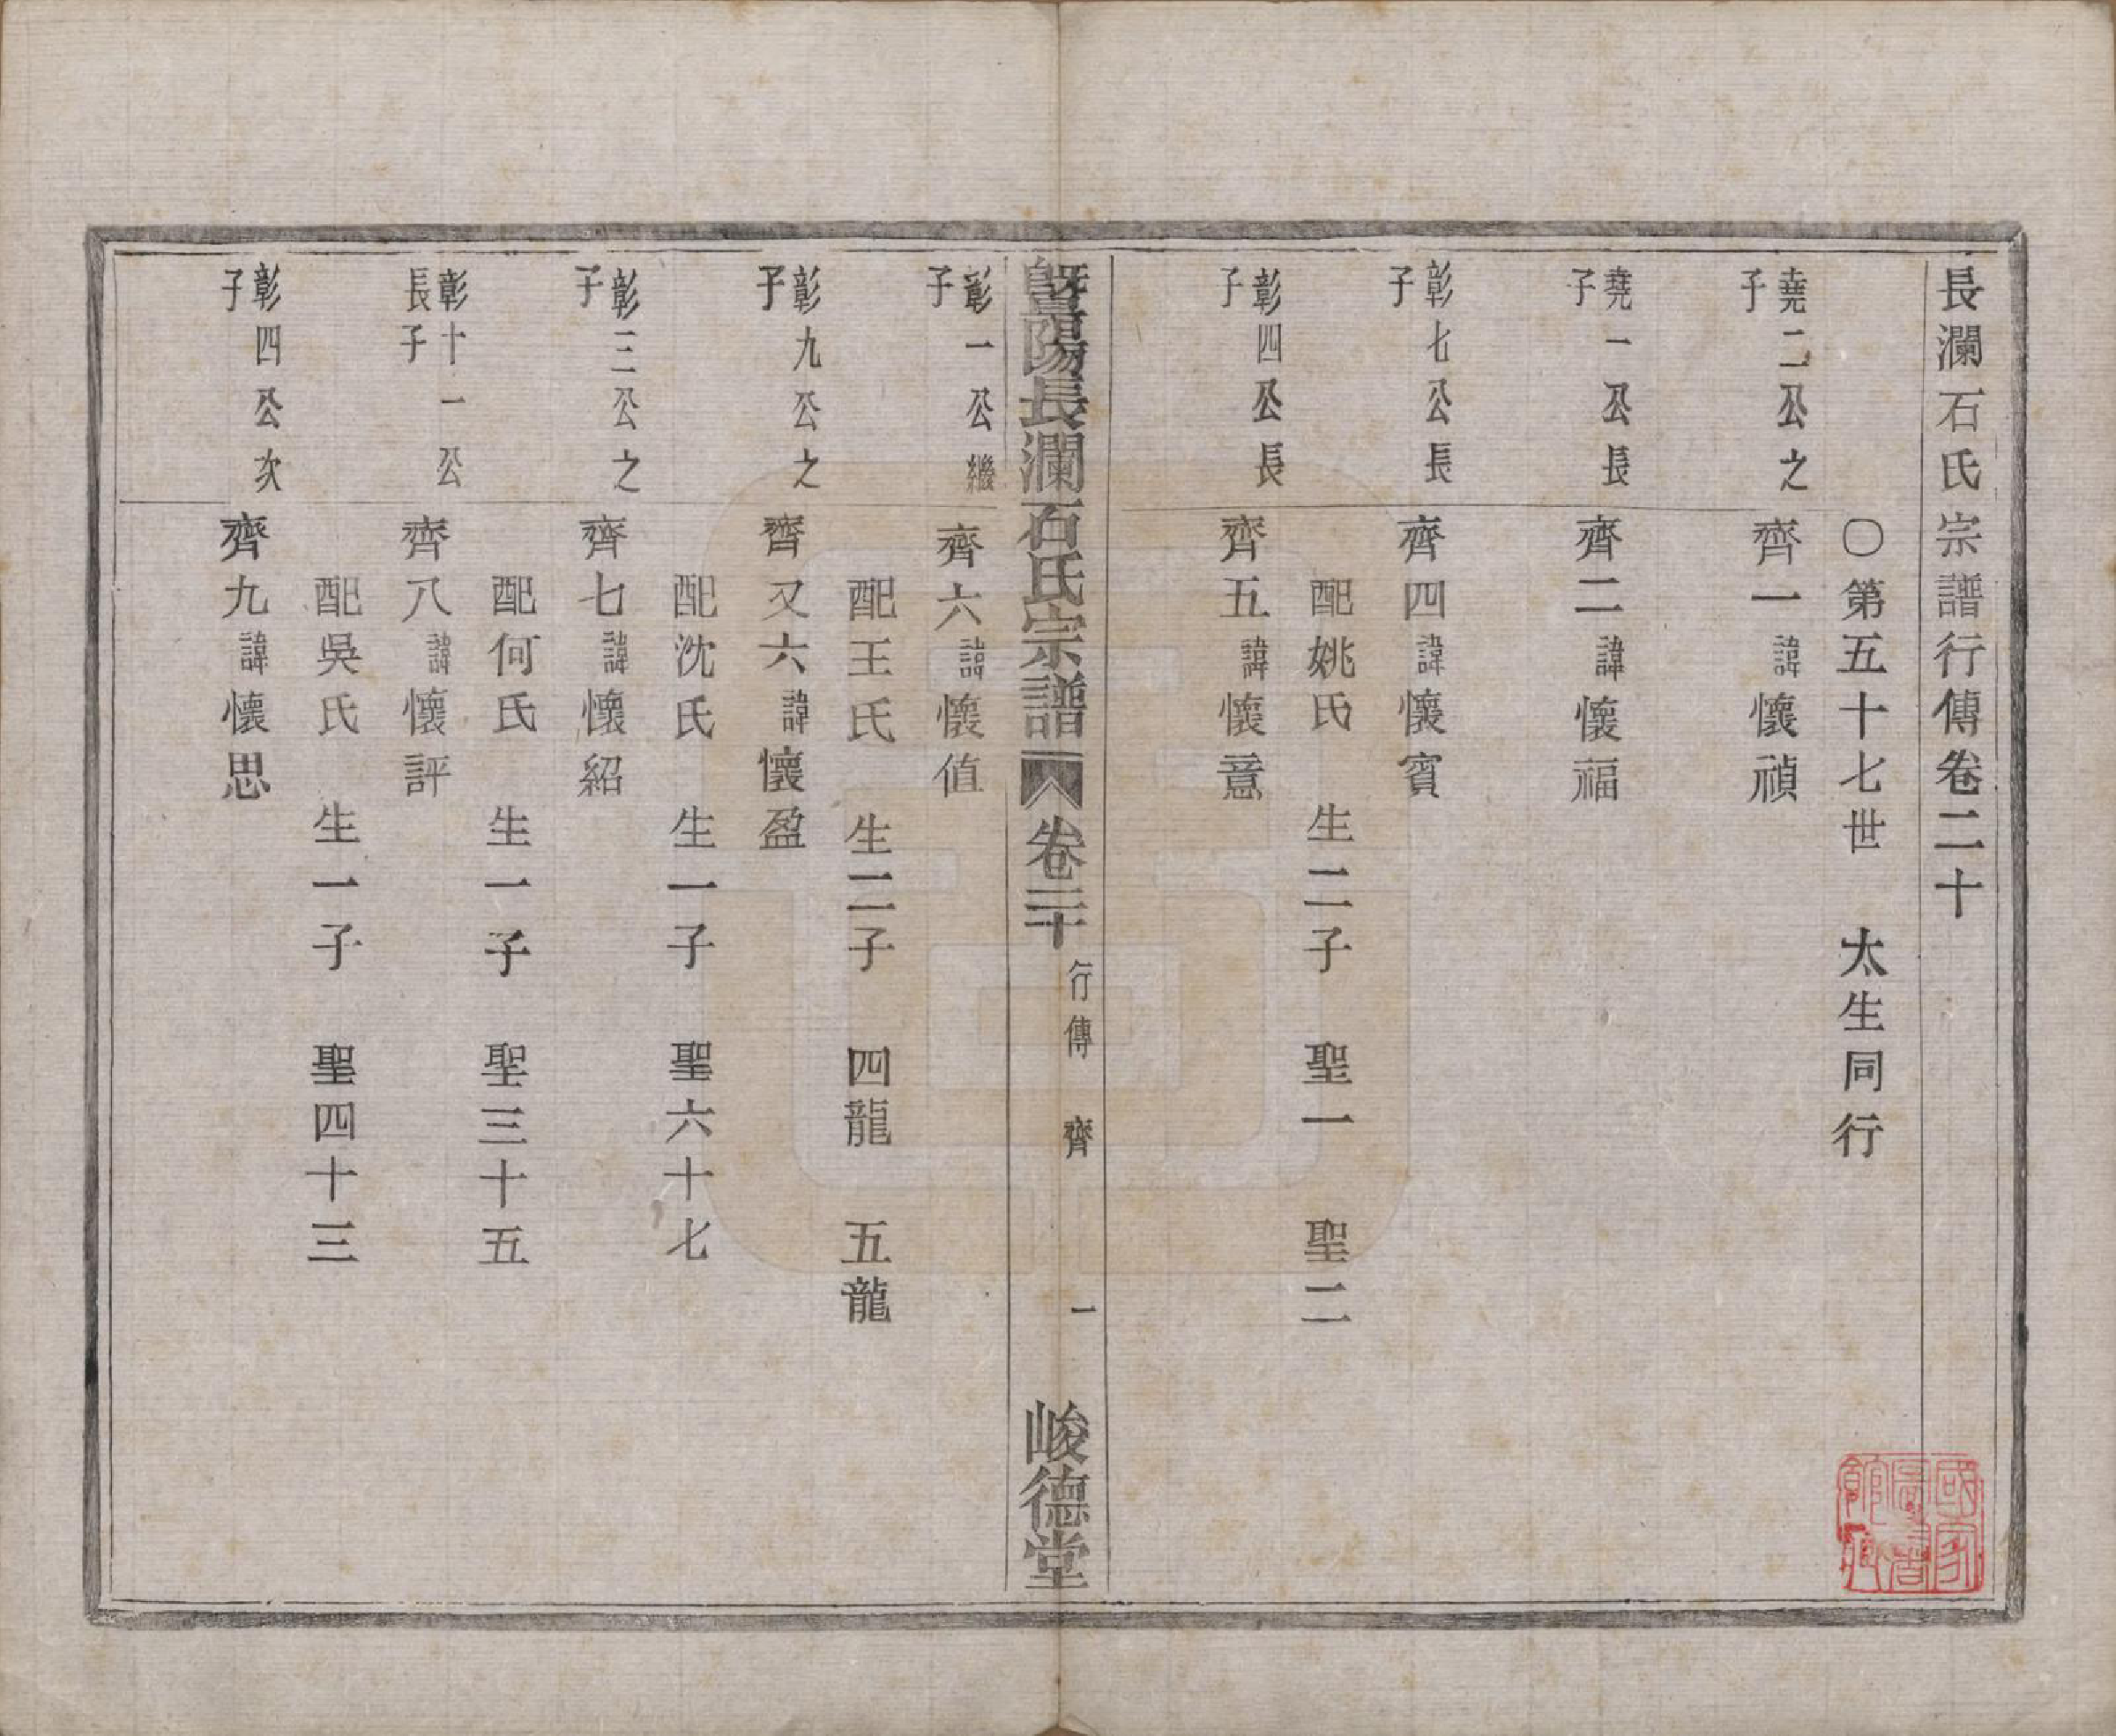 長瀾石氏宗譜行傳卷二十
〇第五十七世　太生同行
堯二公之子
齊一諱懷禎
堯一公長子
齊二諱懷福
彰七公長子
齊四諱懷賓
配姚氏　生二子　聖一　聖二
彰四公長子
齊五諱懷意
暨陽長瀾石氏宗譜　卷二十　行傳　齊　一　峻德堂
彰一公繼子
齊六諱懷值
配王氏　生二子　四龍　五龍
彰九公之子
齊又六諱懷盈
配沈氏　生一子　聖六十七
彰三公之子
齊七諱懷紹
配何氏　生一子　聖三十五
彰十一公長子
齊八諱懷評
配吳氏　生一子　聖四十三
彰四公次子
齊九諱懷思
國家圖書館藏